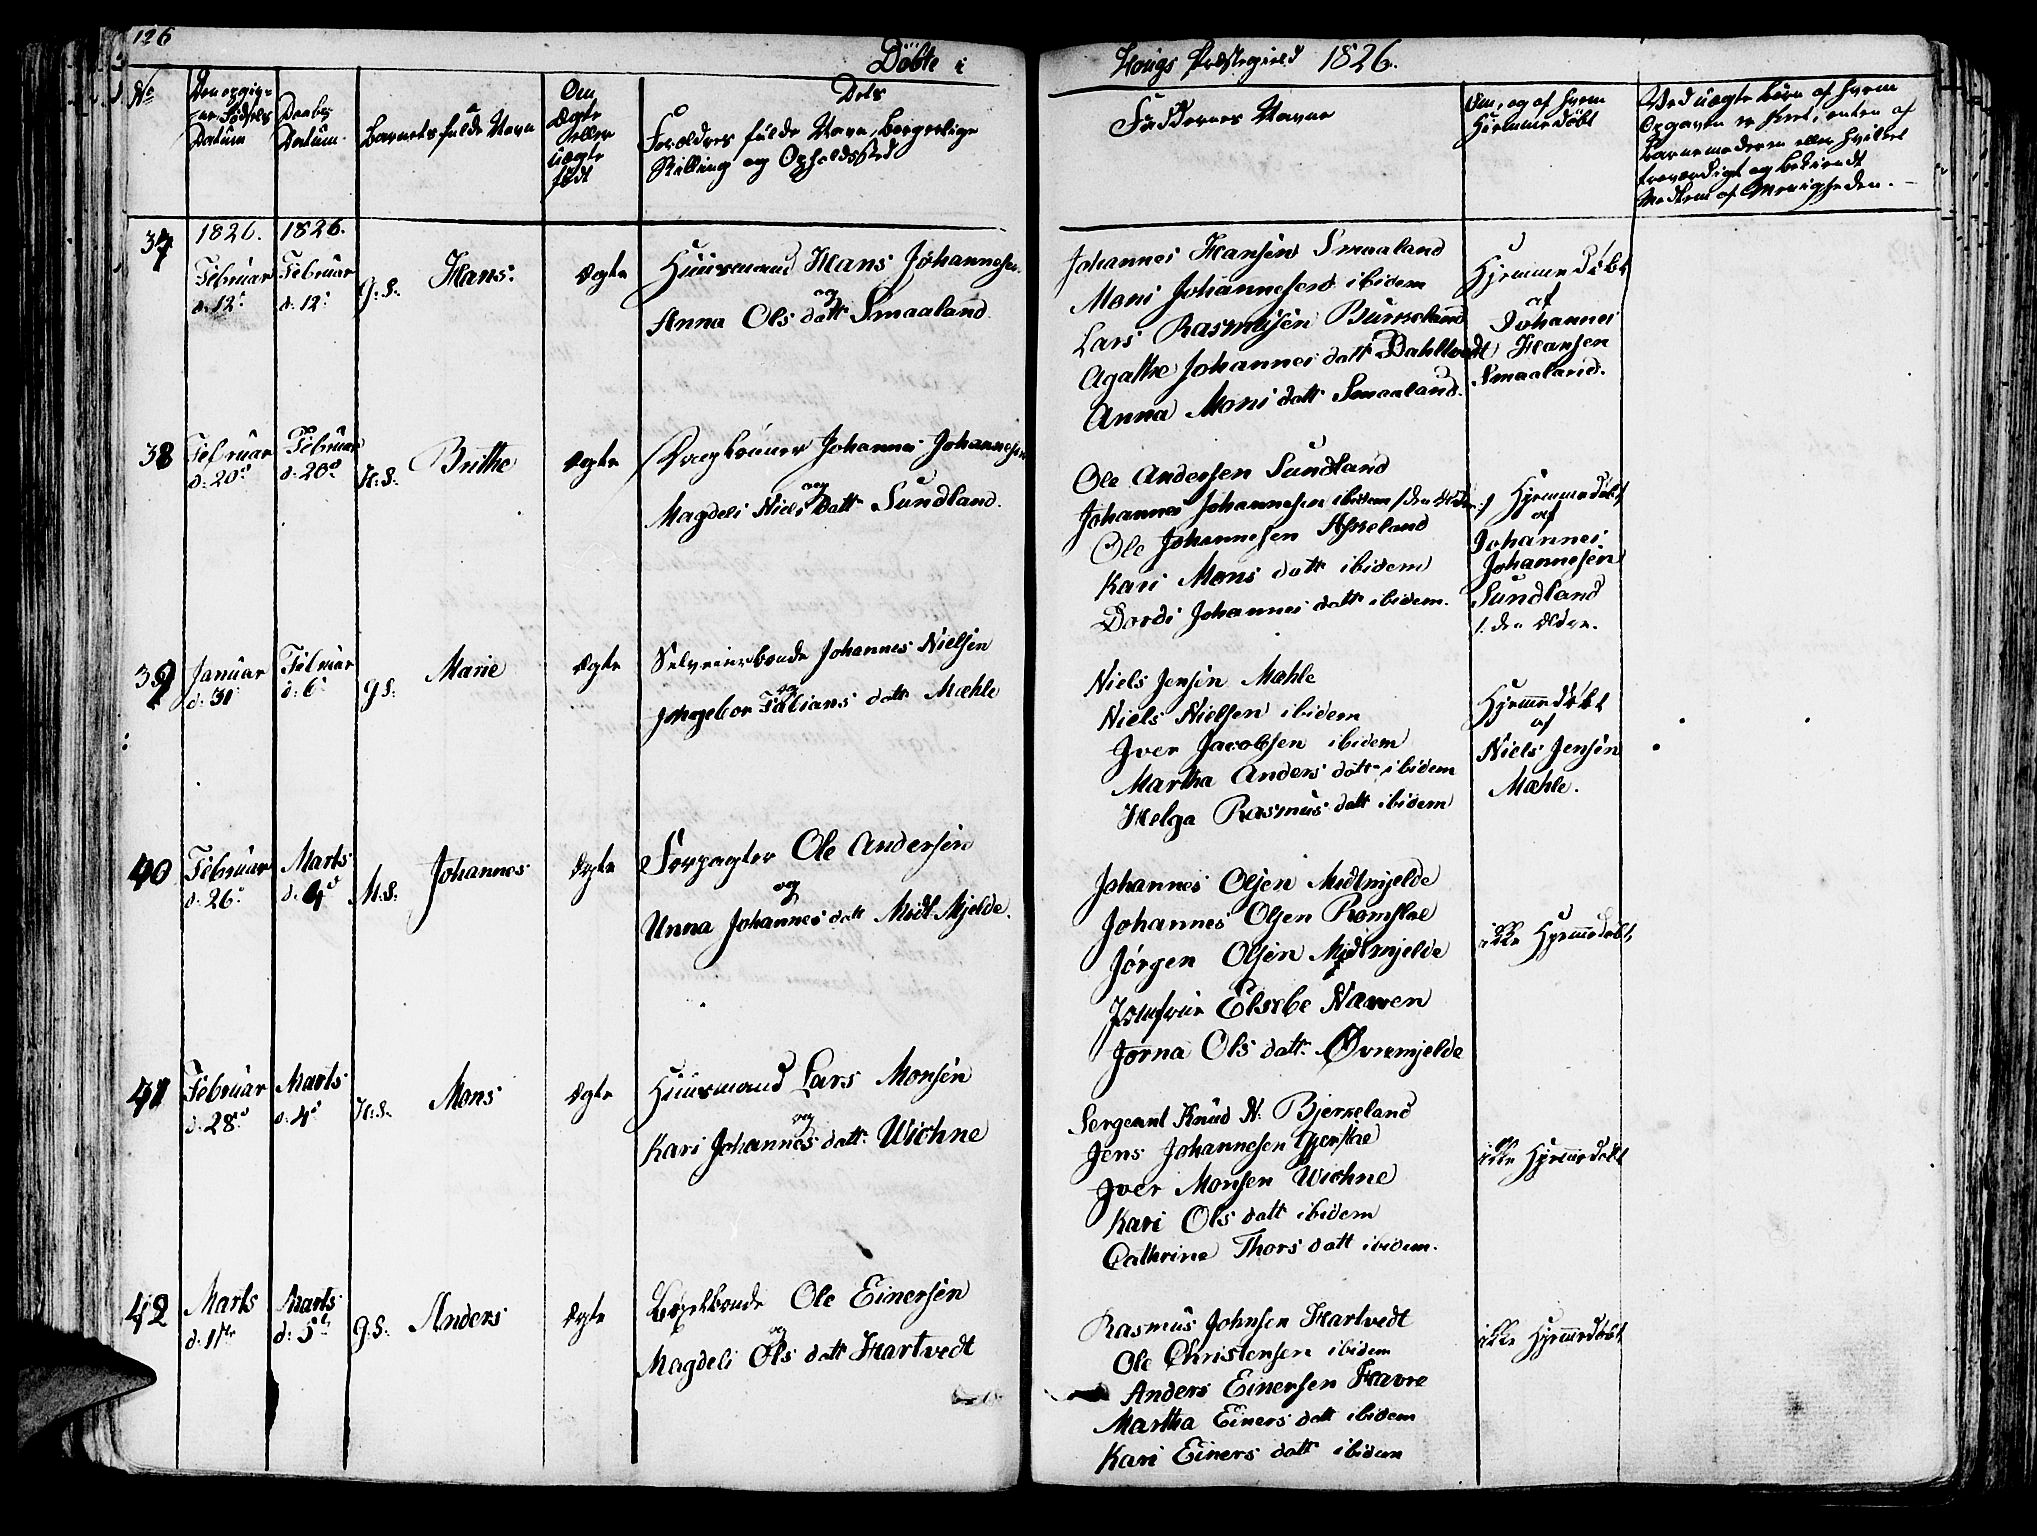 126
Döbte i Hougs Præstegield 1826.
No
Den opgiv-
ne Fødsels
Datum
Daabs
Datum.
Barnets fulde Navn
Om
Ægte
eller
uægte
født
Dets
Forældres fulde Navn, borgerlige
Stilling og Opholdssted
Faddernes Navne
Om, og af hvem
Hjemmedøbt
Ved uægte børn af hvem
Opgaven er skeet, enten af
Barnemoderen eller hvilket
troværdigt og bekiendt
Medlem af Menigheden. -
37
1826.
Februar
d: 12.
1826.
Februar
d: 12.
G: S.
Hans.
Ægte
Huusmand Hans Johannesen
og
Anna Ols datt Smaaland.
Johannes Hansen Smaaland
Mons Johannesen ibidem
Lars Rasmusen Burkeland
Agathe Johannes datt Dahltvedt
Anna Mons datt Smaaland.
Hjemmedøbt
af
Johannes
Hansen
Smaaland.
38
Februar
d: 20.
Februar
d: 20.
H: S.
Brithe
Ægte
Brugbruuer Johannes Johannesen
og
Magdeli Niels Datt Sundland.
Ole Andersen Sundland
Johannes Johannesen ibidem /: den Ældre :/
Ole Johannesen Askeland
Kari Mons datt ibidem
Dordi Johannes datt ibidem.
Hjemmedøbt
af
Johannes
Johannesen
Sundland
/: den Ældre.
39
Januar
d: 31
Februar
d: 6
G: S.
Marie
Ægte
Selveierbonde Johannes Nielsen
og
Ingebor Fabians datt Mæhle
Niels Jensen Mæhle
Niels Nielsen ibidem
Iver Jacobsen ibidem
Martha Anders datt ibidem
Helga Rasmus datt ibidem
Hjemmedøbt
af
Niels Jensen
Mæhle.
40
Februar
d: 26.
Marts
d: 4
M: S.
Johannes
Ægte
Forpagter Ole Andersen
og
Unna Johannes datt Midt Mjelde.
Johannes Olsen Midtmjelde
Johannes Olsen Romsloe
Jørgen Olsen Midtmjelde
Jomfrue Elsebe Nawen
Jorna Ols datt. Øvremjelde
ikke Hjemmedøbt
41
Februar
d: 28
Marts
d: 4
H: S.
Mons
Ægte
Huusmand Lars Monsen
og
Kari Johannes datt. Wichne
Sergeant Knud N. Bjerkeland
Jens Johannesen
Iver Monsen Wichne
Kari Ols datt ibidem
Cathrine Thors datt ibidem.
ikke Hjemmedøbt
42
Marts
d: 1te
Marts
d: 5te
G: S.
Anders
Ægte
Bøxelbonde Ole Einersen
og
Magdeli Ols datt Hartvedt
Rasmus Johnsen Hartvedt
Ole Christensen ibidem
Anders Einersen Havre
Martha Einers datt ibidem
Kari Einers datt ibidem
ikke Hjemmedøbt